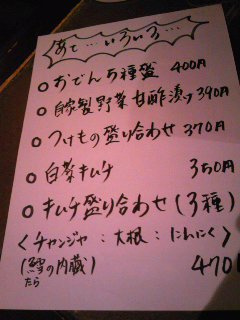 あて…いろいろ…
○ おでん5種盛 400円
○ 自家製野菜甘酢漬け 390円
○ つけもの盛り合わせ 370円
○ 白菜キムチ 350円
○ キムチ盛り合わせ(3種)
<チャンジャ:大根:にんにく>
(鱈の内蔵) 470
たら